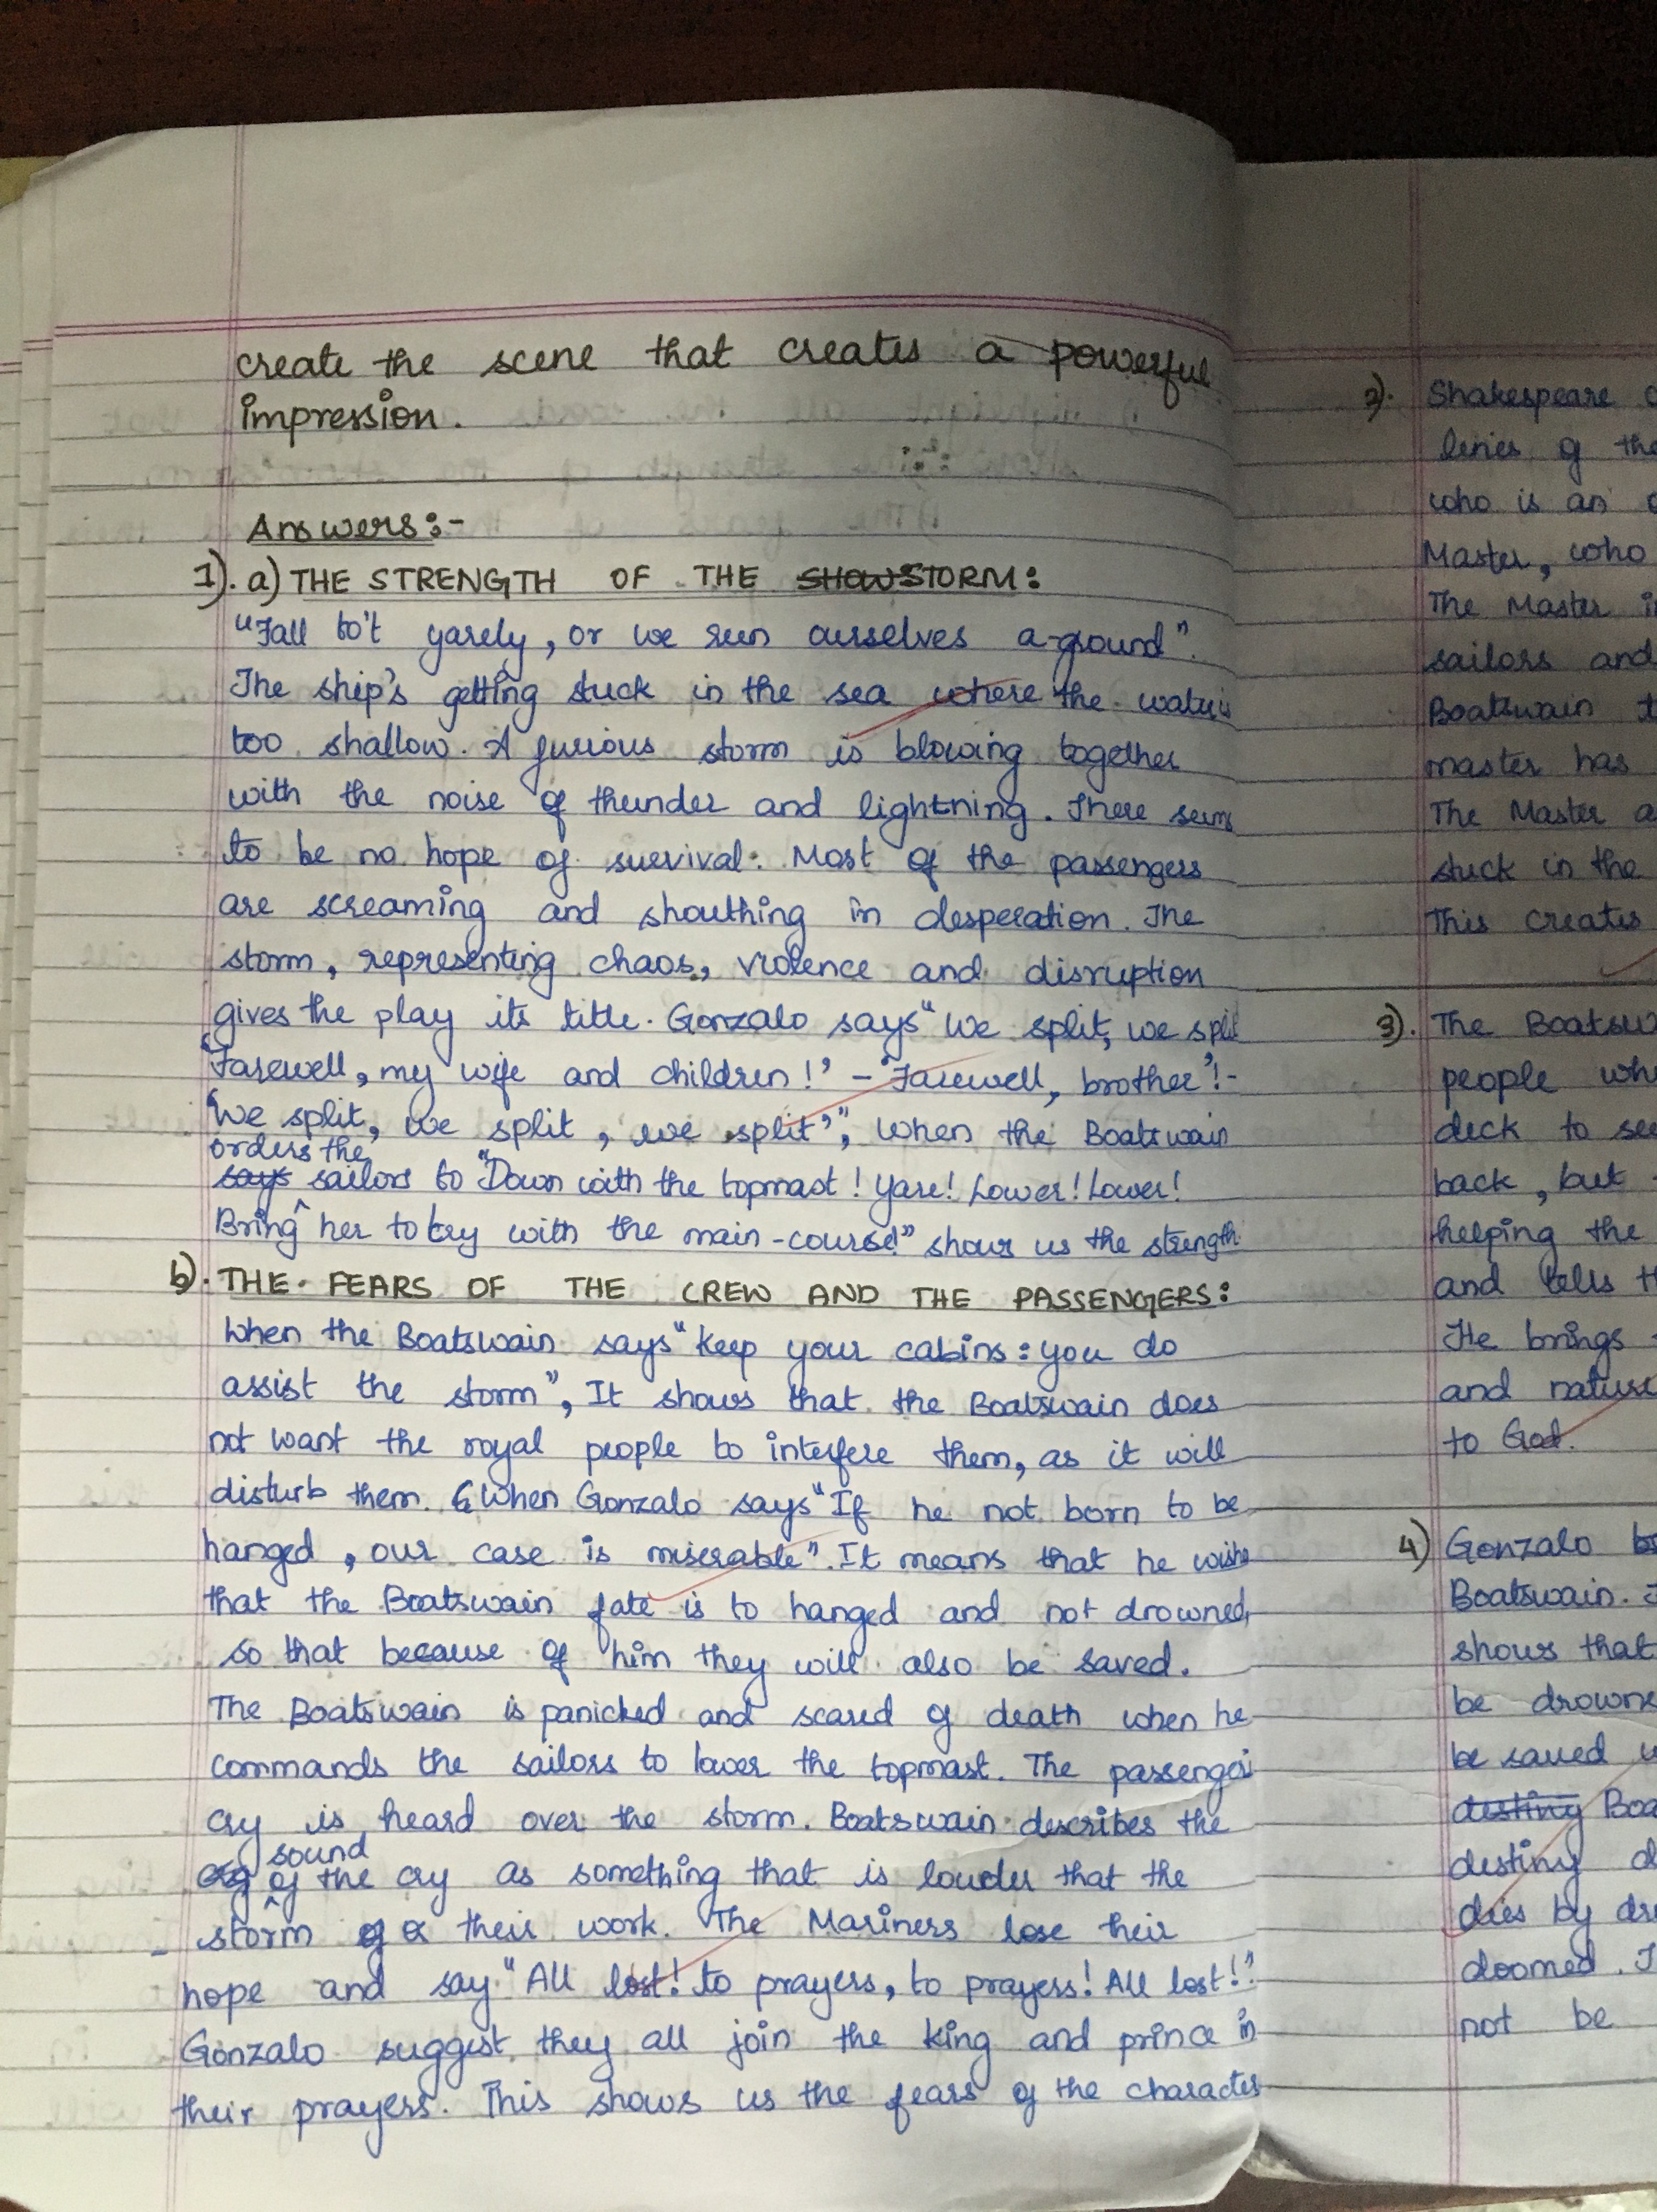 create the scene that creates a powerful
impression.
Answers:-
1). a) THE STRENGTH OF THE SHOWSTORM:
"Fall to't yarely, or we run ourselves a-ground".
The ship's getting stuck in the sea where the water is
too shallow. A furious storm is blowing together
with the noise of thunder and lightning. There seems
to be no hope of survival. Most of the passengers
are screaming and shouthing in desperation. The
storm, representing chaos, violence and disruption
gives the play its title. Gonzalo says "We split, we split
'Farewell, my wife and children!' - 'Farewell, brother'! -
'We split, we split, we split'", When the Boatswain
orders the
says sailors to "Down with the topmast! Yare! Lower! Lower!
Bring her to try with the main-course!" shows us the strength
b). THE FEARS OF THE CREW AND THE PASSENGERS:
When the Boatswain says "Keep your cabins: you do
assist the storm", It shows that the Boatswain does
not want the royal people to interfere them, as it will
disturb them. When Gonzalo says "If he not born to be
hanged, our case is miserable". It means that he wishes
that the Boatswain fate is to hanged and not drowned,
so that because of him they will also be saved.
The Boatswain is panicked and scared of death when he
commands the sailors to lower the topmast. The passengers
cry is heard over the storm. Boatswain describes the
sound
of the cry as something that is louder that the
storm or their work. The Mariners lose their
hope and say "All lost! to prayers, to prayers! All lost!"
Gonzalo suggest they all join the king and prince in
their prayers. This shows us the fears of the character
2). Shakespeare
lines of the
who is an
Master, who
The Master
sailors and
Boatswain
master has
The Master
stuck in the
This creates
3). The
people
deck to see
back, but
helping the
and tells
He brings
and nature
to God.
4) Gonzalo
Boatswain.
shows that
be
be saved
destiny
destiny
dies by
doomed.
not be